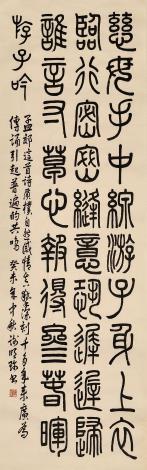 慈母手中線游子身上衣
臨行密密縫意恐遲遲歸
誰言寸草心報得三春暉
游子吟
孟郊這首詩質樸自然感情真摯深刻千多年來廣為
傳誦引起普遍的共鳴 癸未年中秋